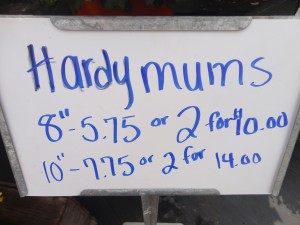 Hardy mums
8"-5.75 or 2 for $10.00
10"-7.75 or 2 for 14.00